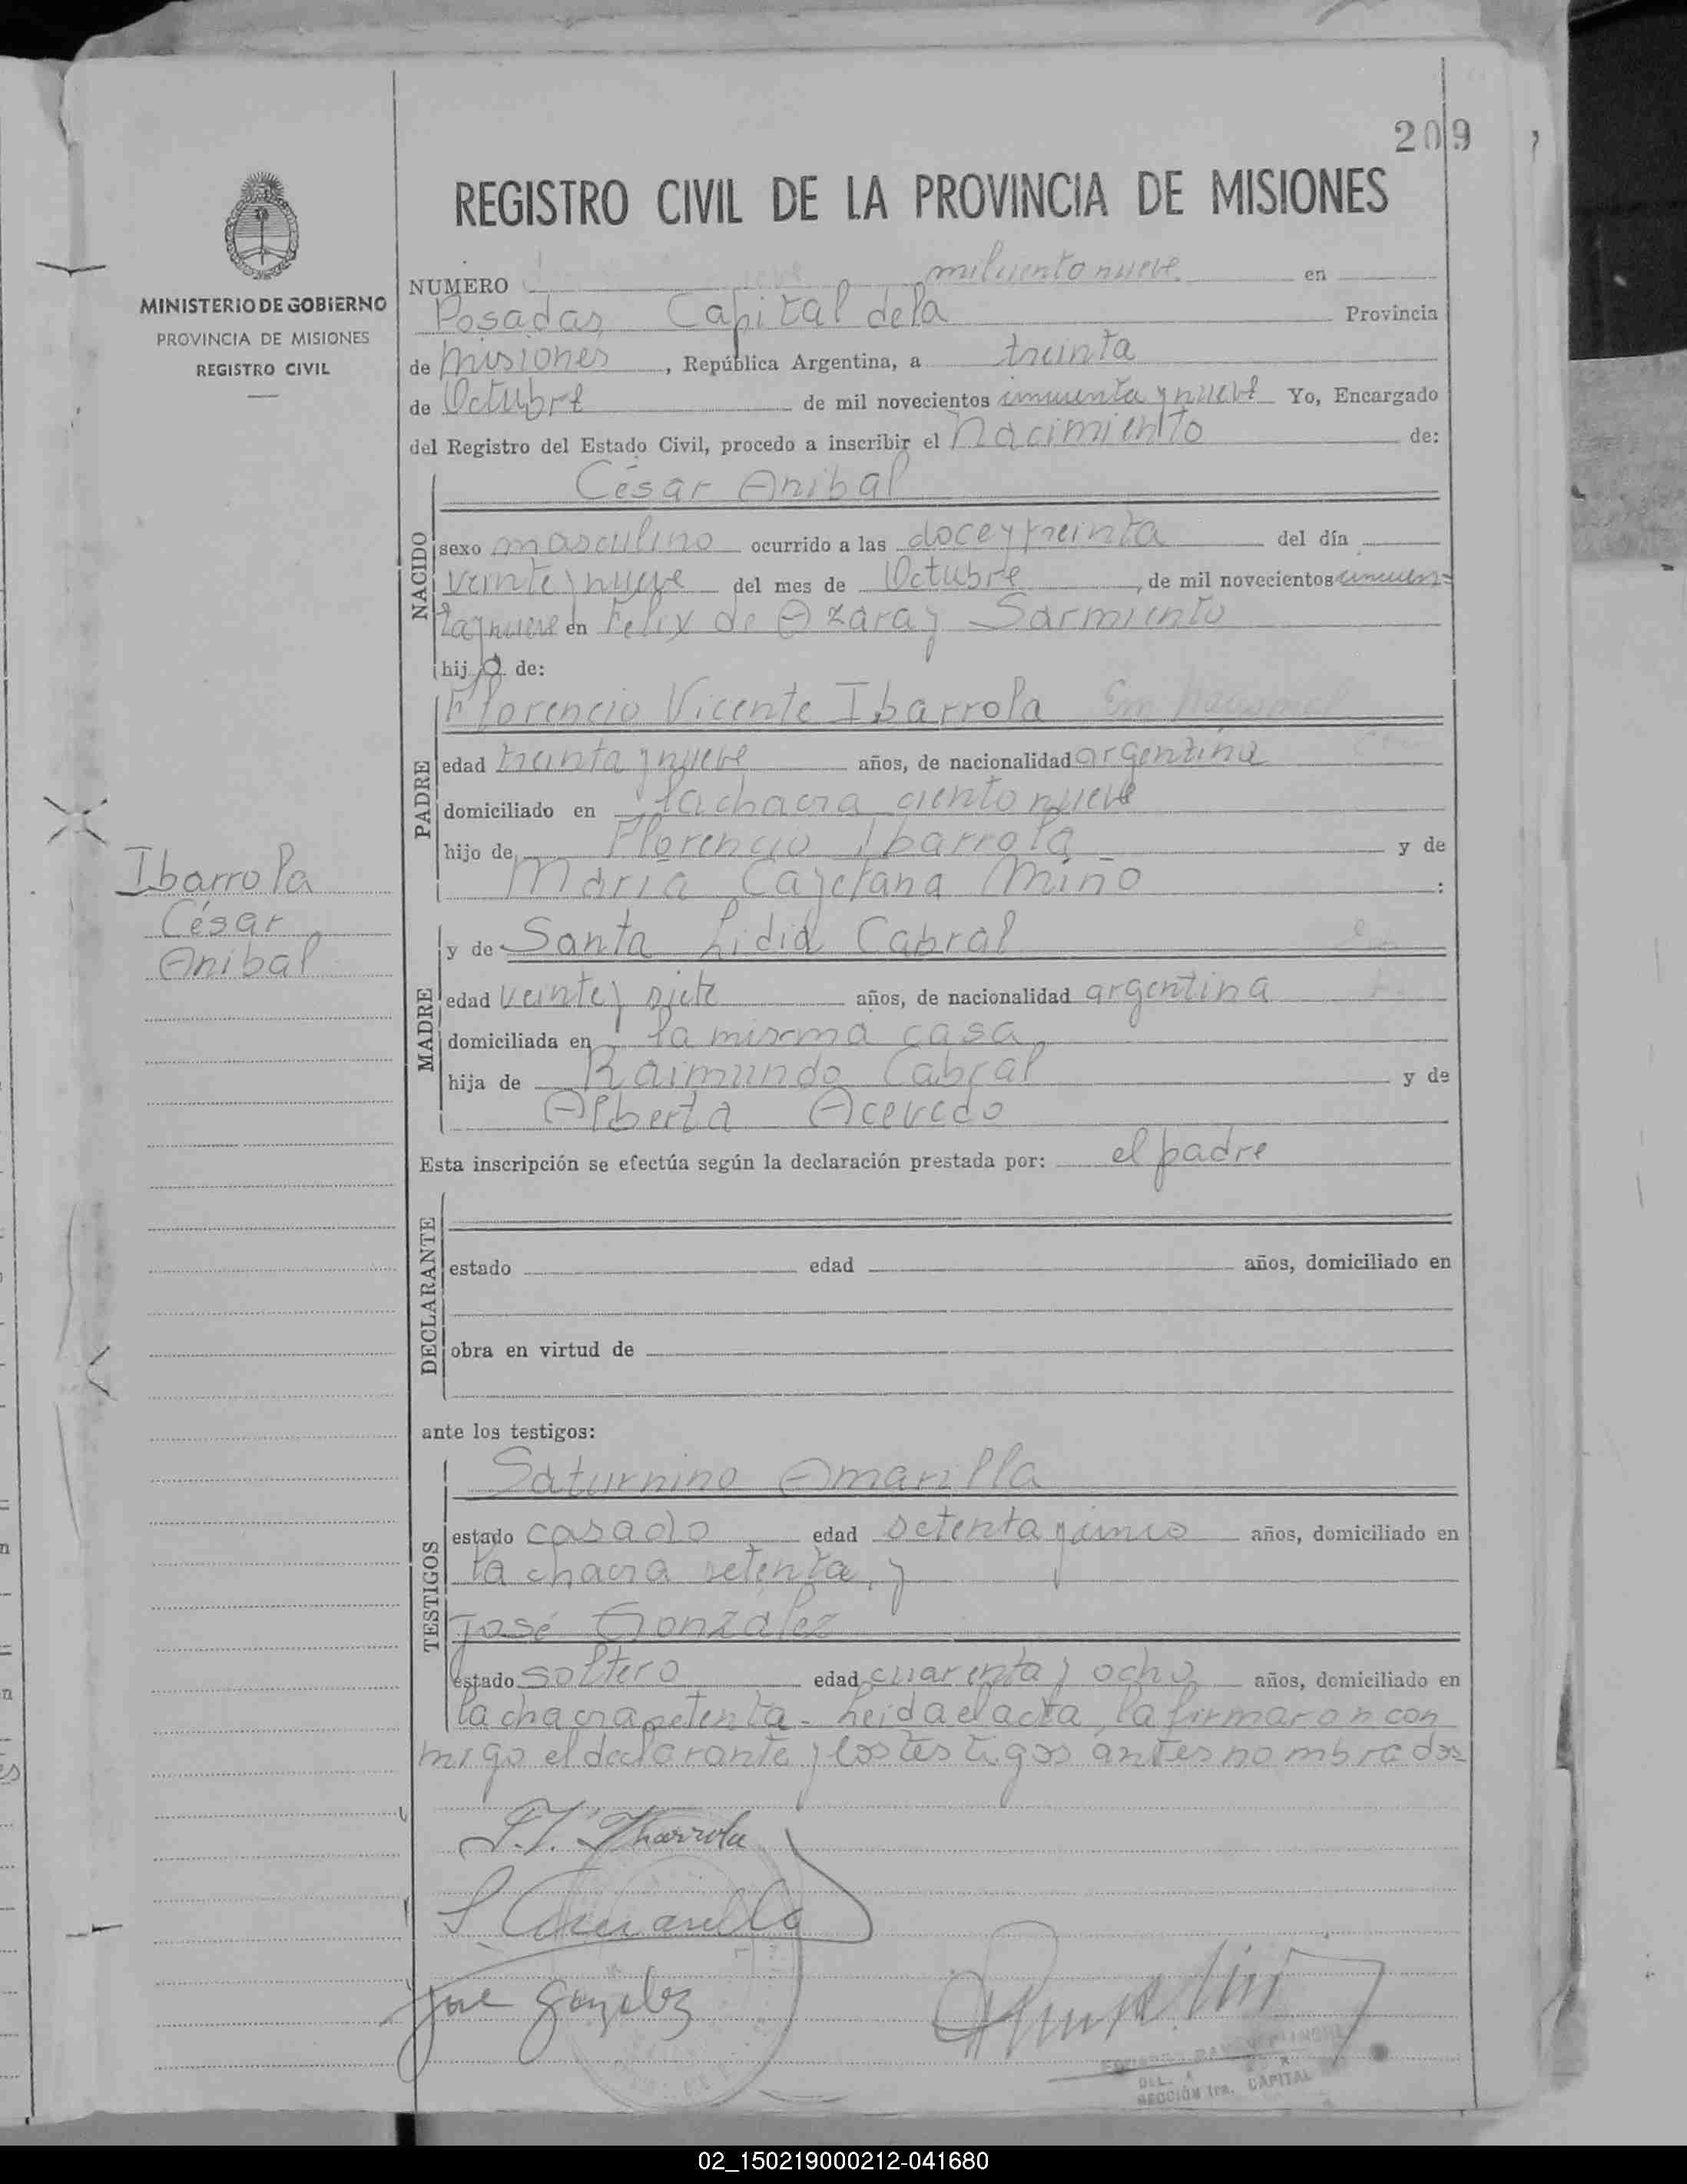 209
REGISTRO CIVIL DE LA PROVINCIA DE MISIONES
MINISTERIO DE GOBIERNO
PROVINCIA DE MISIONES
REGISTRO CIVIL
NUMERO mil ciento nueve en
Posadas, Capital de la Provincia
de Misiones, República Argentina, a treinta
de Octubre de mil novecientos cincuenta y nueve Yo, Encargado
del Registro del Estado Civil, procedo a inscribir el Nacimiento de:
César Anibal
NACIDO
sexo masculino ocurrido a las doce y treinta del día
veinte y nueve del mes de Octubre, de mil novecientos cincuen=
ta y nueve en Felix de Azara y Sarmiento
hijo de:
Florencio Vicente Ibarrola
PADRE
edad treinta y nueve años, de nacionalidad argentina
domiciliado en la chacra ciento nueve
hijo de Florencio Ibarrola y de
Maria Cayetana Miño :
Ibarrola
César
Anibal
MADRE
y de Santa Lidia Cabral
edad veinte y siete años, de nacionalidad argentina
domiciliada en la misma casa,
hija de Raimundo Cabral y de
Alberta Acevedo
Esta inscripción se efectúa según la declaración prestada por: el padre
DECLARANTE
estado edad años, domiciliado en
obra en virtud de
ante los testigos:
TESTIGOS
Saturnino Amarilla
estado casado edad setenta y cinco años, domiciliado en
la chacra setenta, y
José González
estado soltero edad cuarenta y ocho años, domiciliado en
la chacra setenta - Leida el acta, la firmaron con
migo el declarante y los testigos antes nombrados=
F. V. Ibarrola
S. Amarilla
José González
SECCIÓN 1ra. CAPITAL
02_150219000212-041680